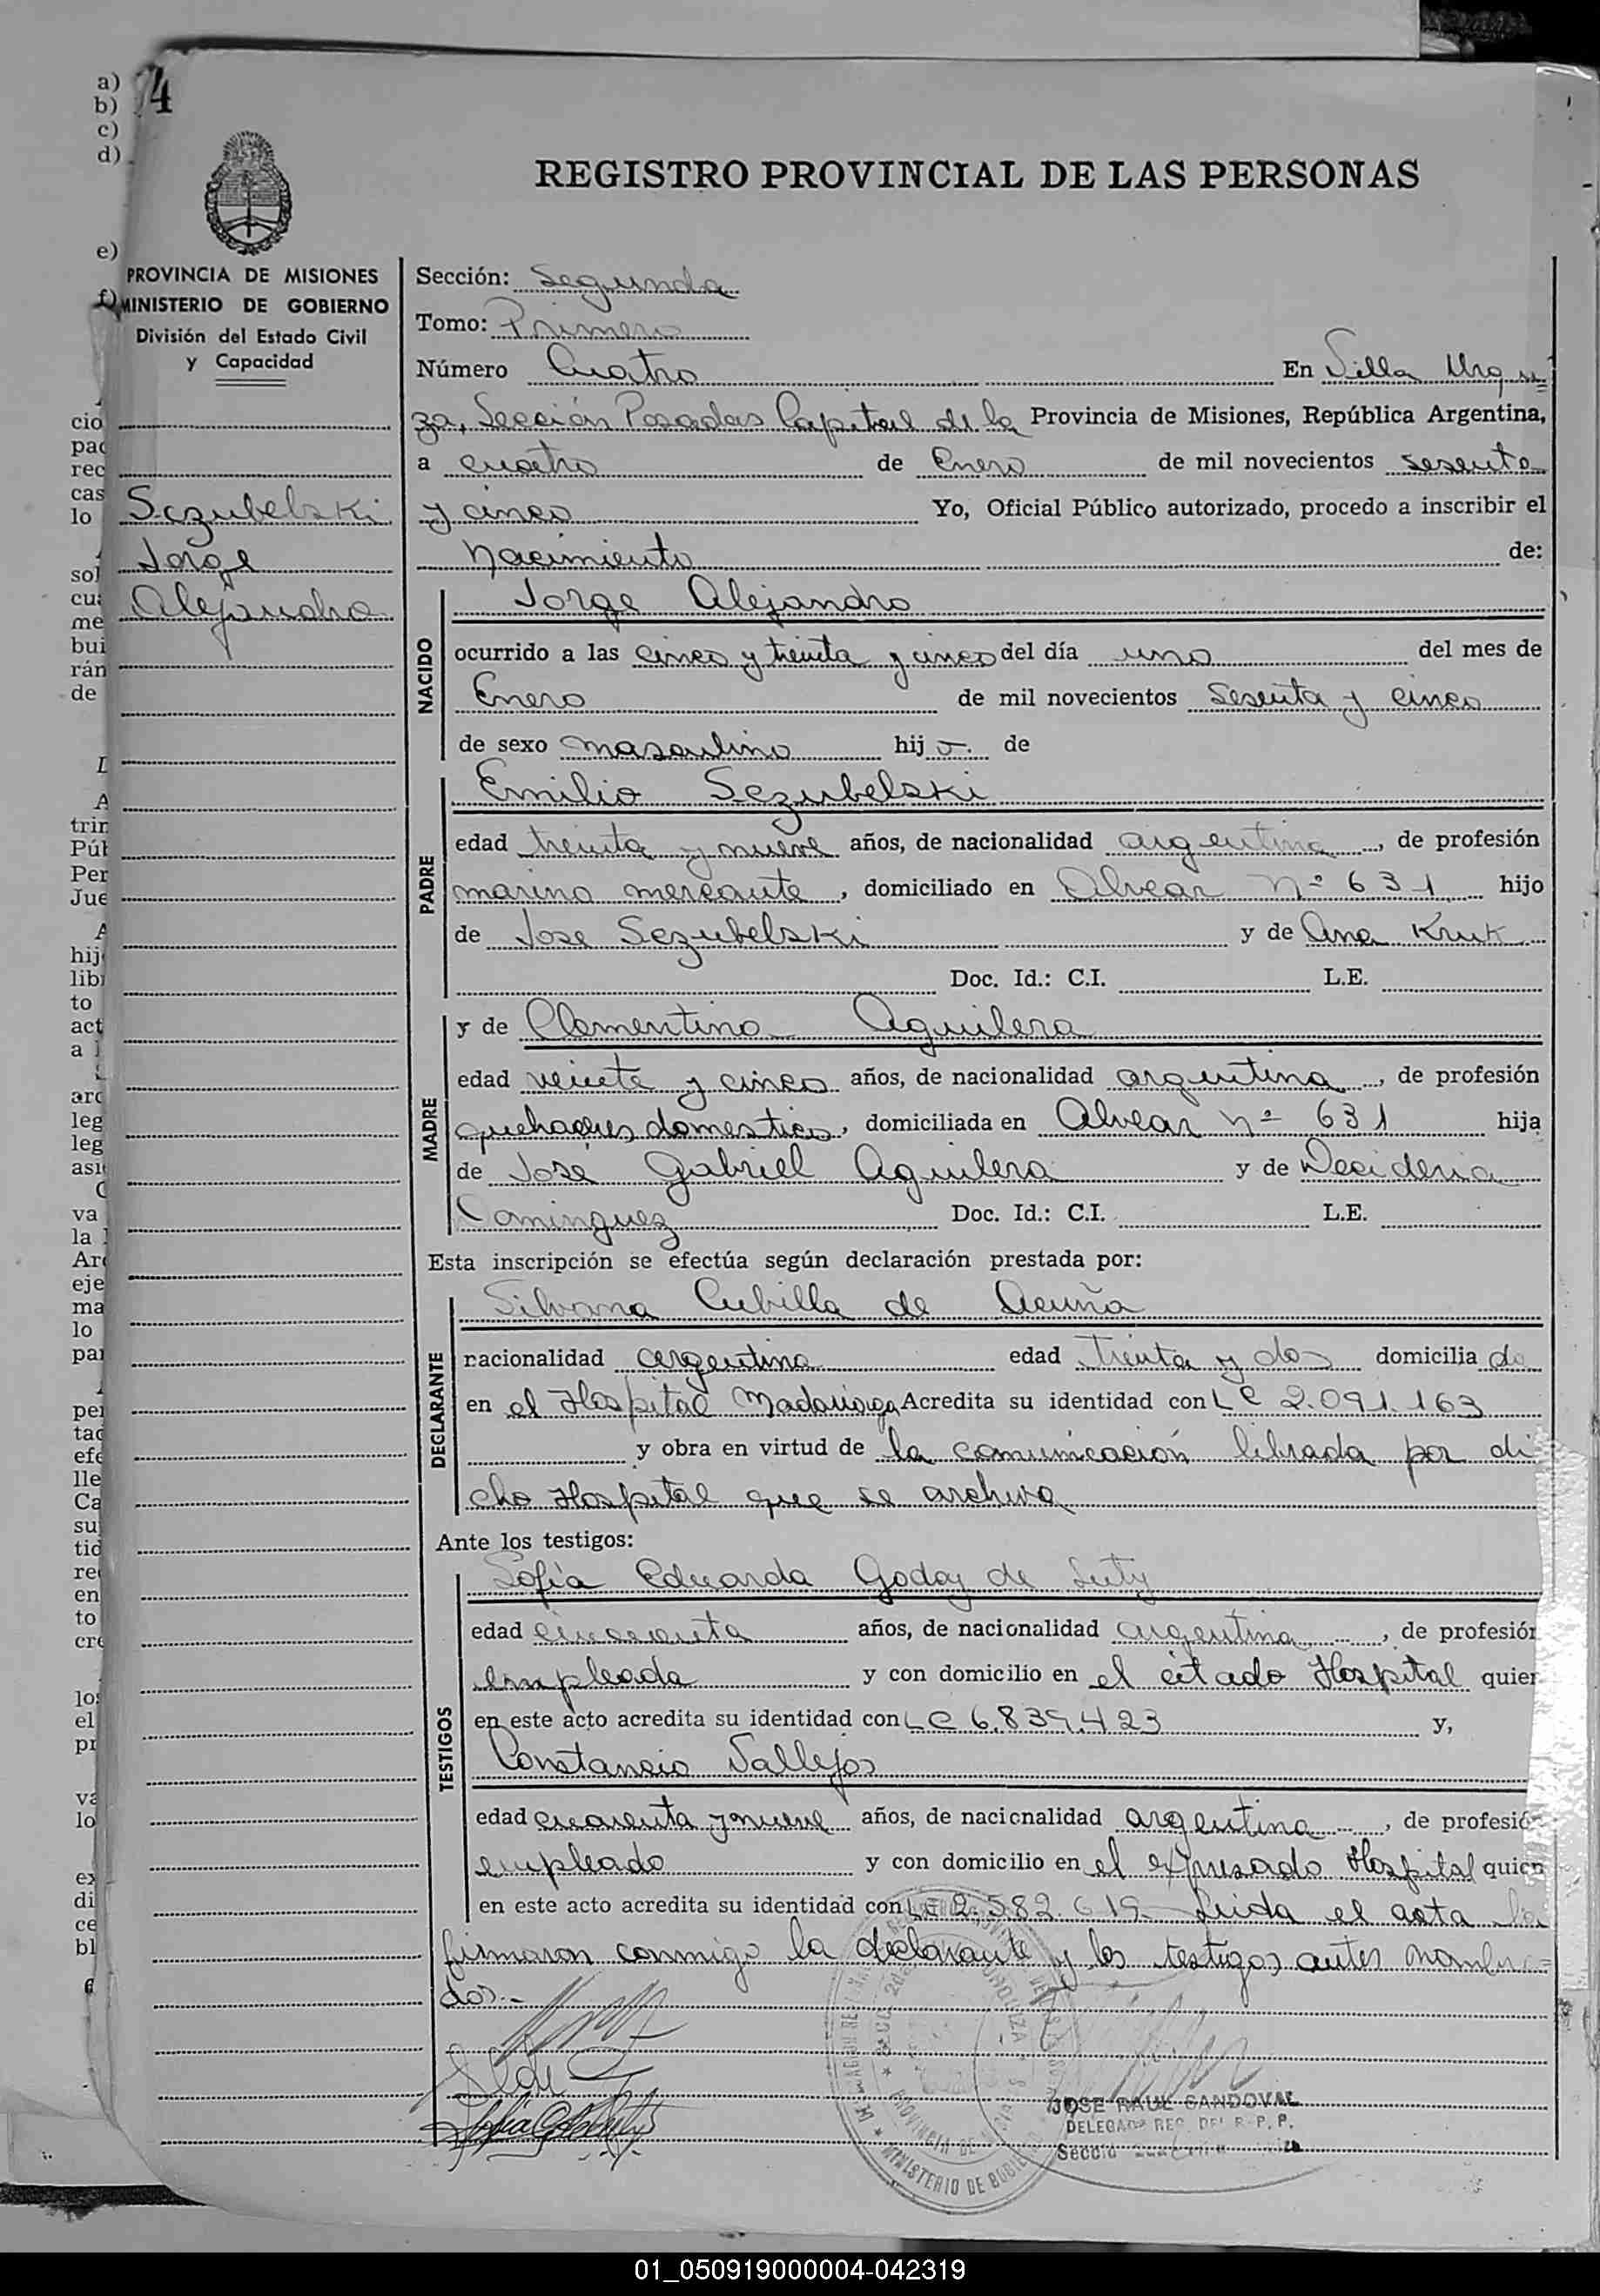 a)
b)
c)
d)
e)
f)
4
REGISTRO PROVINCIAL DE LAS PERSONAS
PROVINCIA DE MISIONES
MINISTERIO DE GOBIERNO
División del Estado Civil
y Capacidad
Sczubelski
Jorge
Alejandro
Sección: Segunda
Tomo: Primero
Número Cuatro En Villa Urqui
za, Sección Posadas Capital de la Provincia de Misiones, República Argentina,
a cuatro de Enero de mil novecientos sesenta
y cinco Yo, Oficial Público autorizado, procedo a inscribir el
Nacimiento de:
NACIDO
Jorge Alejandro
ocurrido a las cinco y treinta y cinco del día uno del mes de
Enero de mil novecientos sesenta y cinco
de sexo masculino hijo. de
PADRE
Emilio Sczubelski
edad treinta y nueve años, de nacionalidad argentina, de profesión
marino mercante, domiciliado en Alvear nº 631 hijo
de Jose Sczubelski y de Ana Kruk
Doc. Id.: C.I. L.E.
MADRE
y de Clementina Aguilera
edad veinte y cinco años, de nacionalidad argentina, de profesión
quehaceres domesticos, domiciliada en Alvear nº 631 hija
de José Gabriel Aguilera y de Decideria
Dominguez Doc. Id.: C.I. L.E.
Esta inscripción se efectúa según declaración prestada por:
DECLARANTE
Silvana Cubilla de Acuña
nacionalidad argentina edad treinta y dos domicilia da
en el Hospital Madariaga Acredita su identidad con L C 2.091.163
y obra en virtud de la comunicación librada por di
cho Hospital que se archiva
Ante los testigos:
TESTIGOS
Sofia Eduarda Godoy de
edad cincuenta años, de nacionalidad argentina, de profesión
empleada y con domicilio en el citado Hospital quien
en este acto acredita su identidad con L C 6.839.423 y,
Constancio Vallejos
edad cuarenta y nueve años, de nacionalidad argentina, de profesión
empleado y con domicilio en el expresado Hospital quien
en este acto acredita su identidad con LE 2.582.619 Leida el acta la
firmaron conmigo la declarante y los testigos antes nombra=
dos.-
JOSE RAUL SANDOVAL
DELEGADO REG. DEL R. P. P.
MINISTERIO DE GOBIERNO
01_050919000004-042319